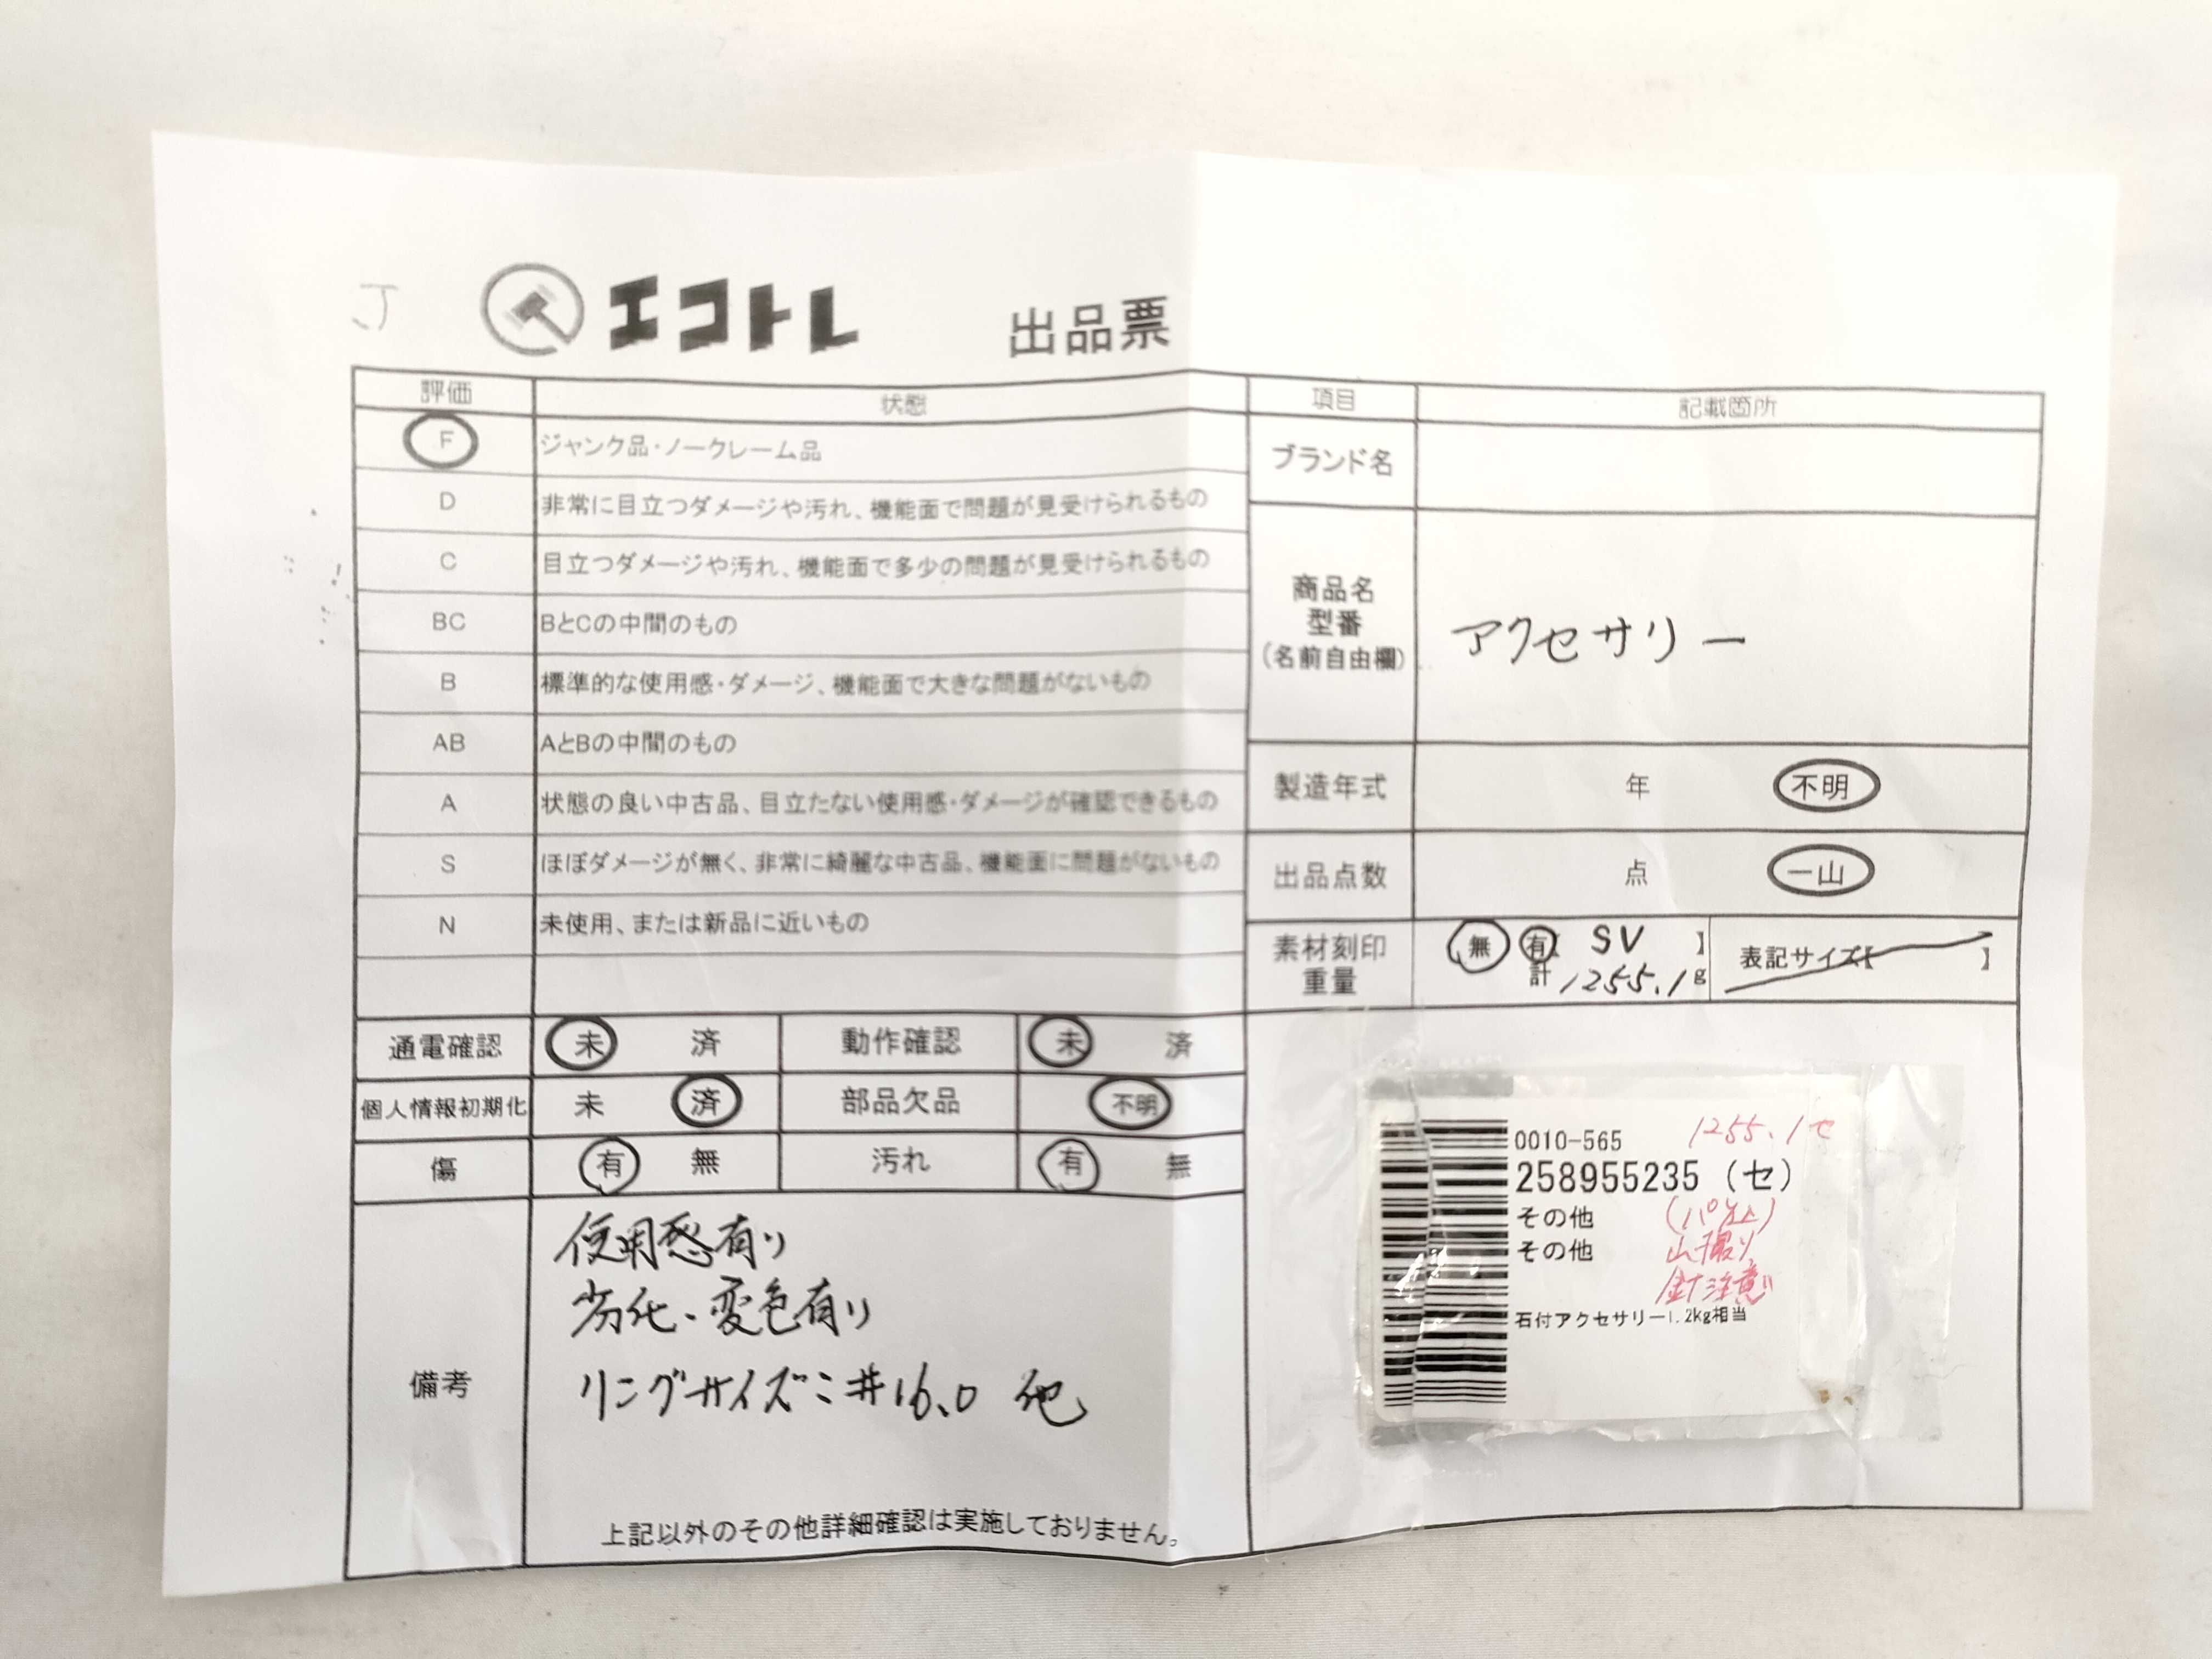 J
エコトレ 出品票
評価 状態
F ジャンク品・ノークレーム品
D 非常に目立つダメージや汚れ、機能面で問題が見受けられるもの
C 目立つダメージや汚れ、機能面で多少の問題が見受けられるもの
BC BとCの中間のもの
B 標準的な使用感・ダメージ、機能面で大きな問題がないもの
AB AとBの中間のもの
A 状態の良い中古品、目立たない使用感・ダメージが確認できるもの
S ほぼダメージが無く、非常に綺麗な中古品、機能面に問題がないもの
N 未使用、または新品に近いもの
通電確認 未 済 動作確認 未 済
個人情報初期化 未 済 部品欠品 不明
傷 有 無 汚れ 有 無
備考
使用感有り
劣化、変色有り
リングサイズ:#16.0 他
上記以外のその他詳細確認は実施しておりません。
項目 記載箇所
ブランド名
商品名
型番
(名前自由欄)
アクセサリー
製造年式 年 不明
出品点数 点 一山
素材刻印
重量
無 有【 SV 】
計 1255.1 g
表記サイズ【 】
0010-565 1255.1 セ
258955235 (セ)
その他
その他 山撮り
針注意!!
石付アクセサリー1.2kg相当